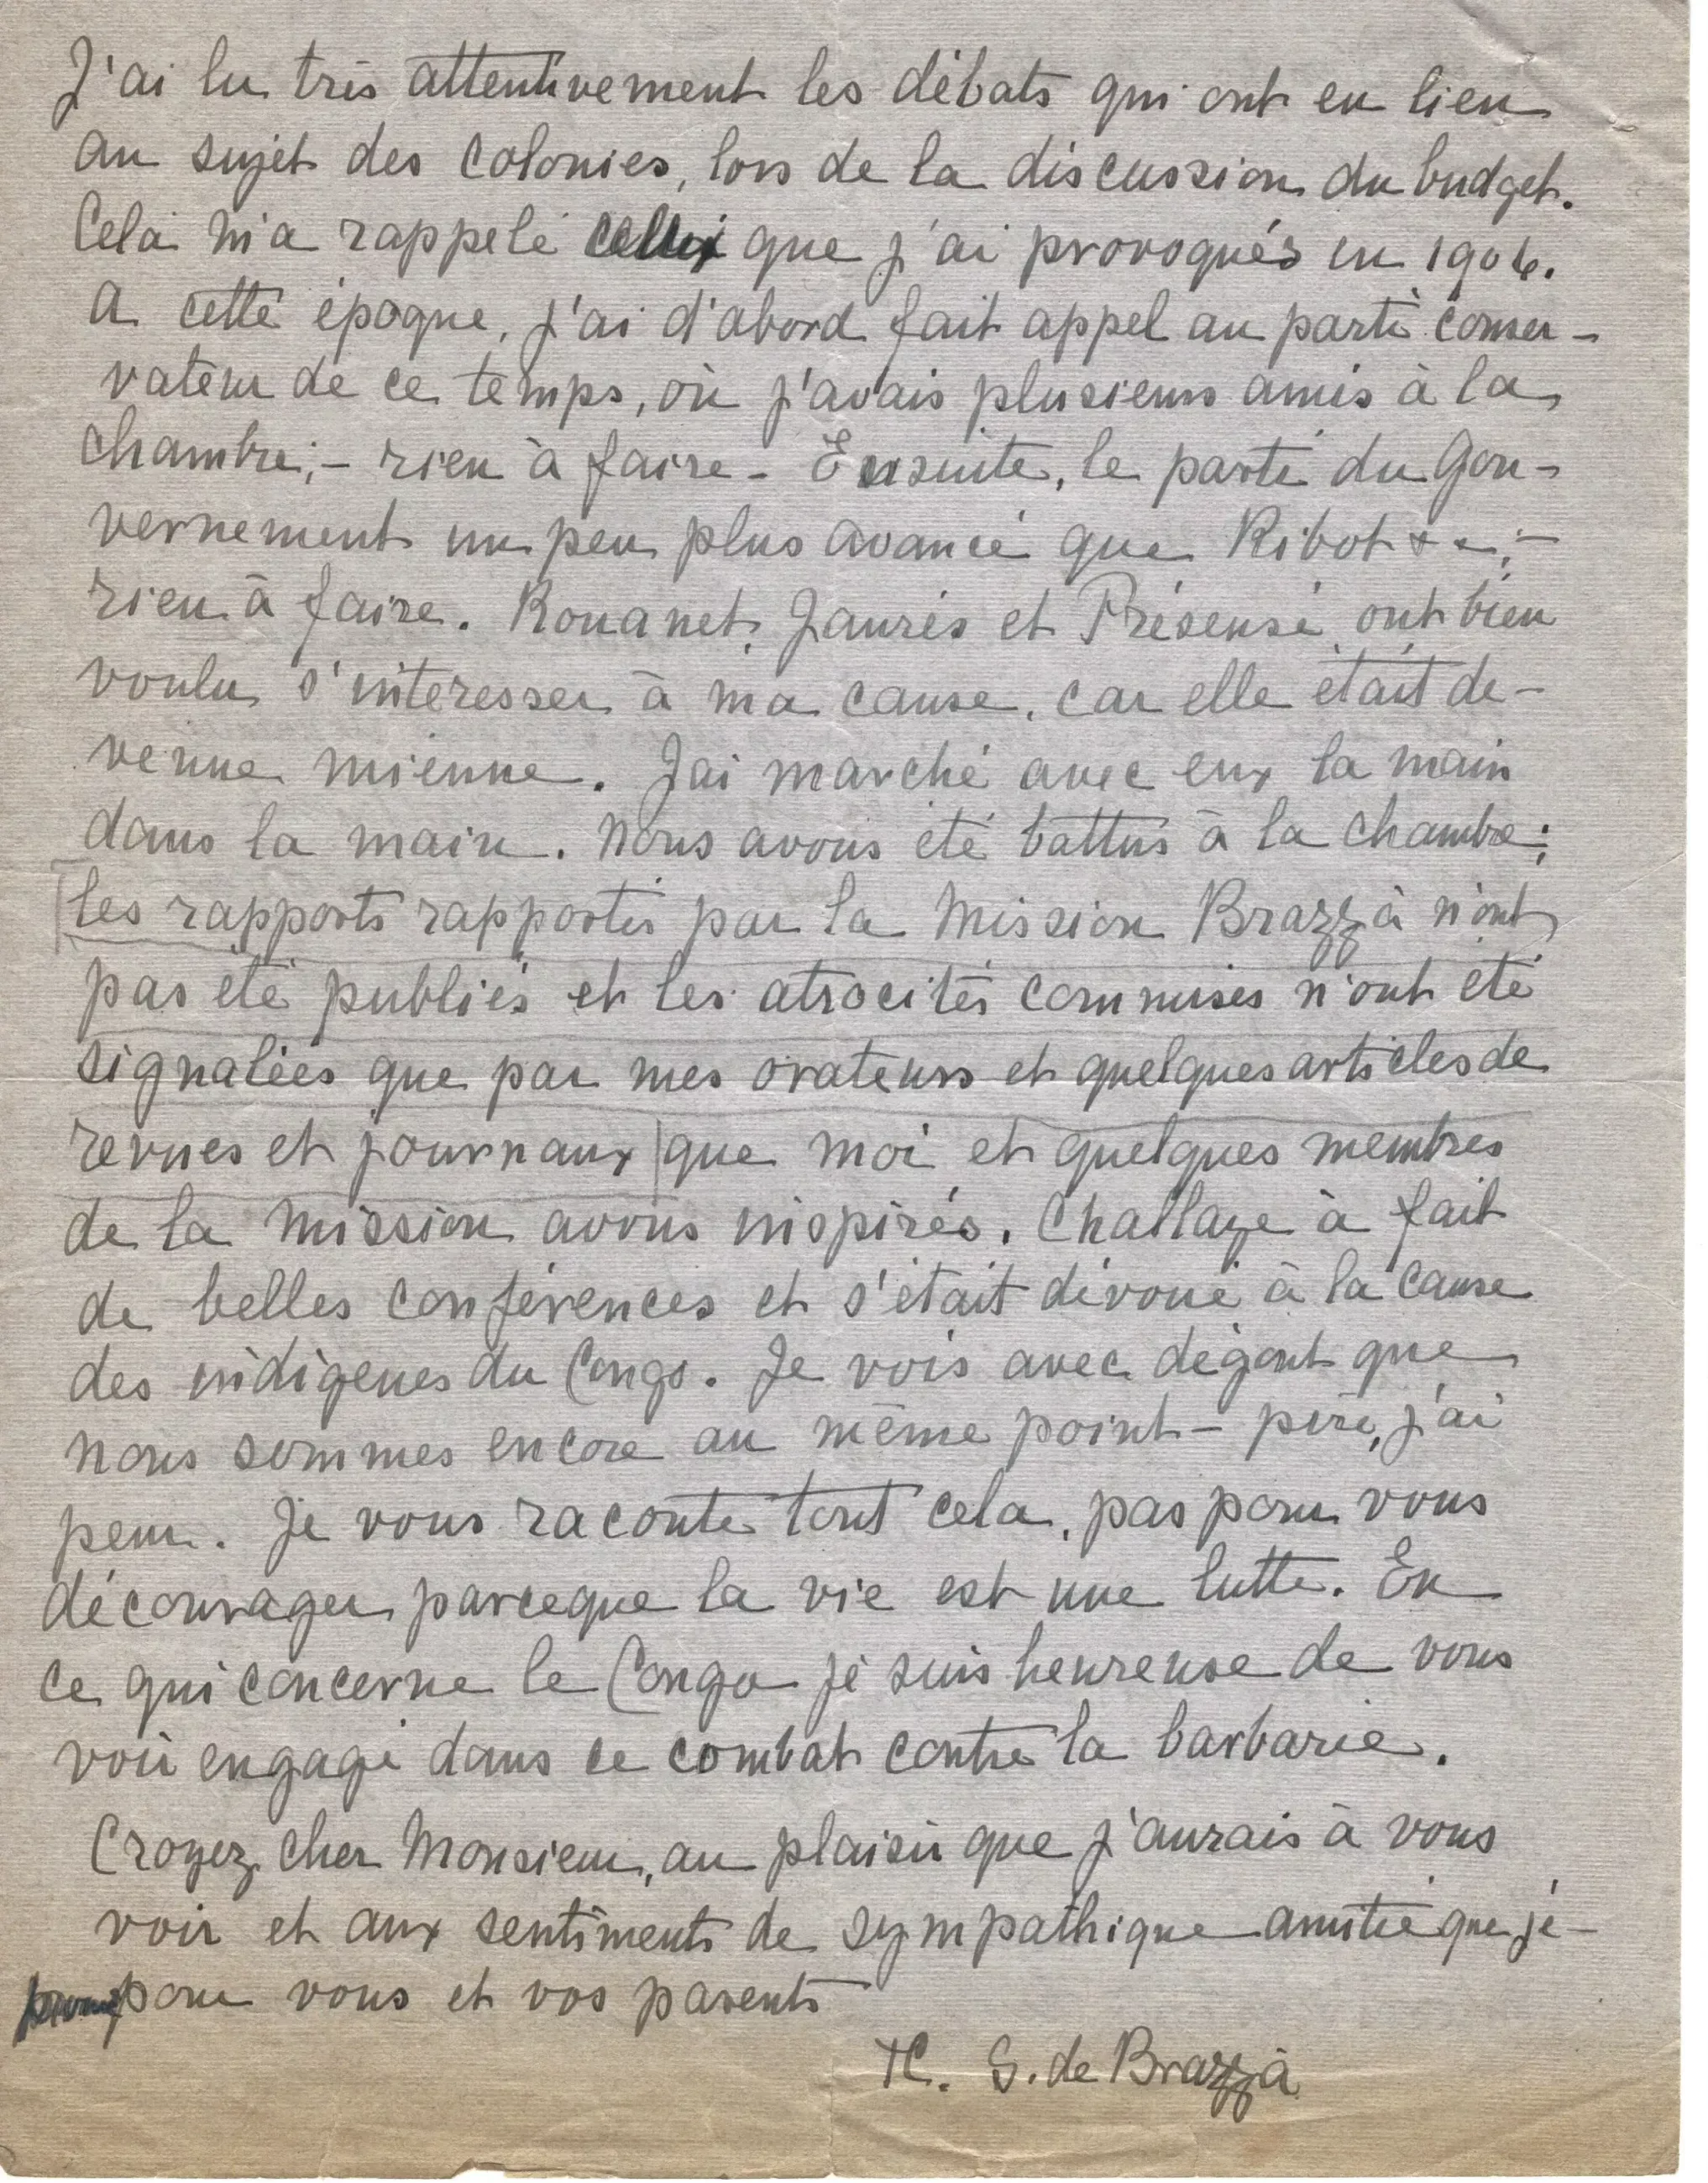 J'ai lu très attentivement les débats qui ont eu lieu
au sujet des colonies, lors de la discussion du budget.
Cela m'a rappelé ceux que j'ai provoqués en 1906.
A cette époque, j'ai d'abord fait appel au parti conser-
vateur de ce temps, où j'avais plusieurs amis à la
chambre;- rien à faire - Ensuite, le parti du Gou-
vernement un peu plus avancé que Ribot ;-
rien à faire. Rouanet, Jaurès et Présensé ont bien
voulu s'intéresser à ma cause, car elle était de-
venue mienne. J'ai marché avec eux la main
dans la main. Nous avons été battus à la chambre;
les rapports rapportés par la Mission Brazzà n'ont
pas été publiés et les atrocités commises n'ont été
signalées que par mes orateurs et quelques articles de
revues et journaux que moi et quelques membres
de la Mission avons inspirés. Challaye à fait
de belles conférences et s'était dévoué à la cause
des indigènes du Congo. Je vois avec dégout que
nous sommes encore au même point - pire, j'ai
peur. Je vous raconte tout cela, pas pour vous
décourager parceque la vie est une lutte. En
ce qui concerne le Congo je suis heureuse de vous
voir engagé dans ce combat contre la barbarie.
Croyez, cher Monsieur, au plaisir que j'aurais à vous
voir et aux sentiments de sympathique amitié que j'é-
prouve pour vous et vos parents
TC. S. de Brazzà